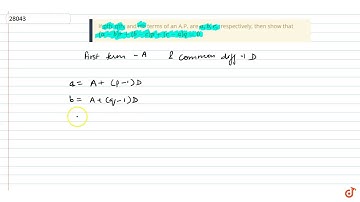 28043
and terms of an A.P. are a, b, c respectively, then show that
First term - A & common diff - D
a = A + (p-1)D
b = A + (q-1)D